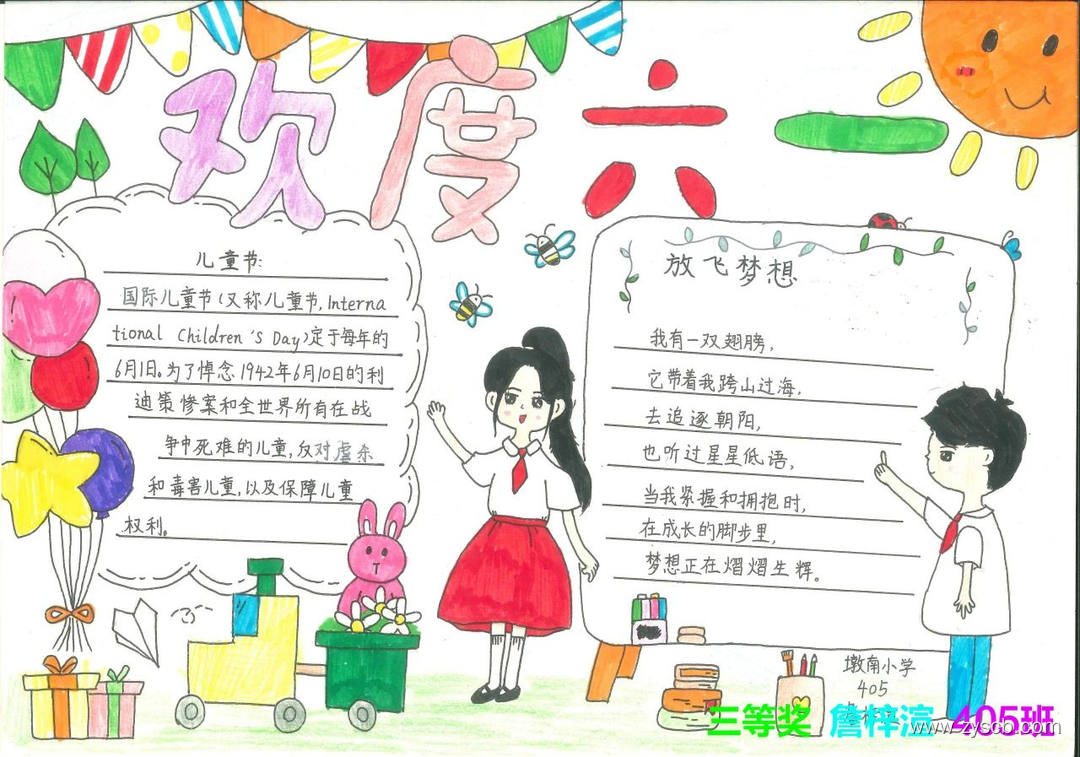 欢度六一
儿童节:
国际儿童节(又称儿童节,Interna
tional Children's Day)定于每年的
6月1日。为了悼念1942年6月10日的利
迪策惨案和全世界所有在战
争中死难的儿童,反对虐杀
和毒害儿童,以及保障儿童
权利。
放飞梦想
我有一双翅膀,
它带着我跨山过海,
去追逐朝阳,
也听过星星低语,
当我紧握和拥抱时,
在成长的脚步里,
梦想正在熠熠生辉。
墩南小学
405
三等奖 詹梓渲 405班
www.zyscb.com